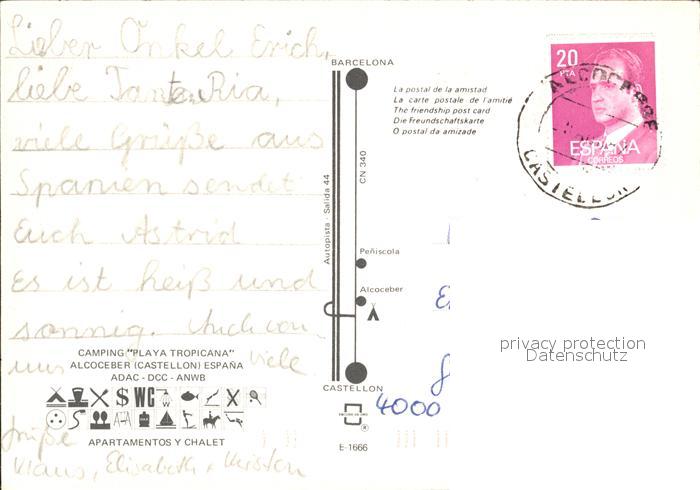 Lieber Onkel Erich,
liebe Tante Ria,
viele Grüße aus
Spanien sendet
Euch Astrid
Es ist heiß und
sonnig. Auch von
uns viele
Grüße
Klaus, Elisabeth + Kirsten
CAMPING "PLAYA TROPICANA"
ALCOCEBER (CASTELLON) ESPAÑA
ADAC - DCC - ANWB
WC
APARTAMENTOS Y CHALET
BARCELONA
Autopista - Salida 44
CN 340
Peñiscola
Alcoceber
CASTELLON
E-1666
La postal de la amistad
La carte postale de l'amitié
The friendship post card
Die Freundschaftskarte
O postal da amizade
20
PTA
ESPAÑA
CORREOS
CASTELLON
privacy protection
Datenschutz
4000